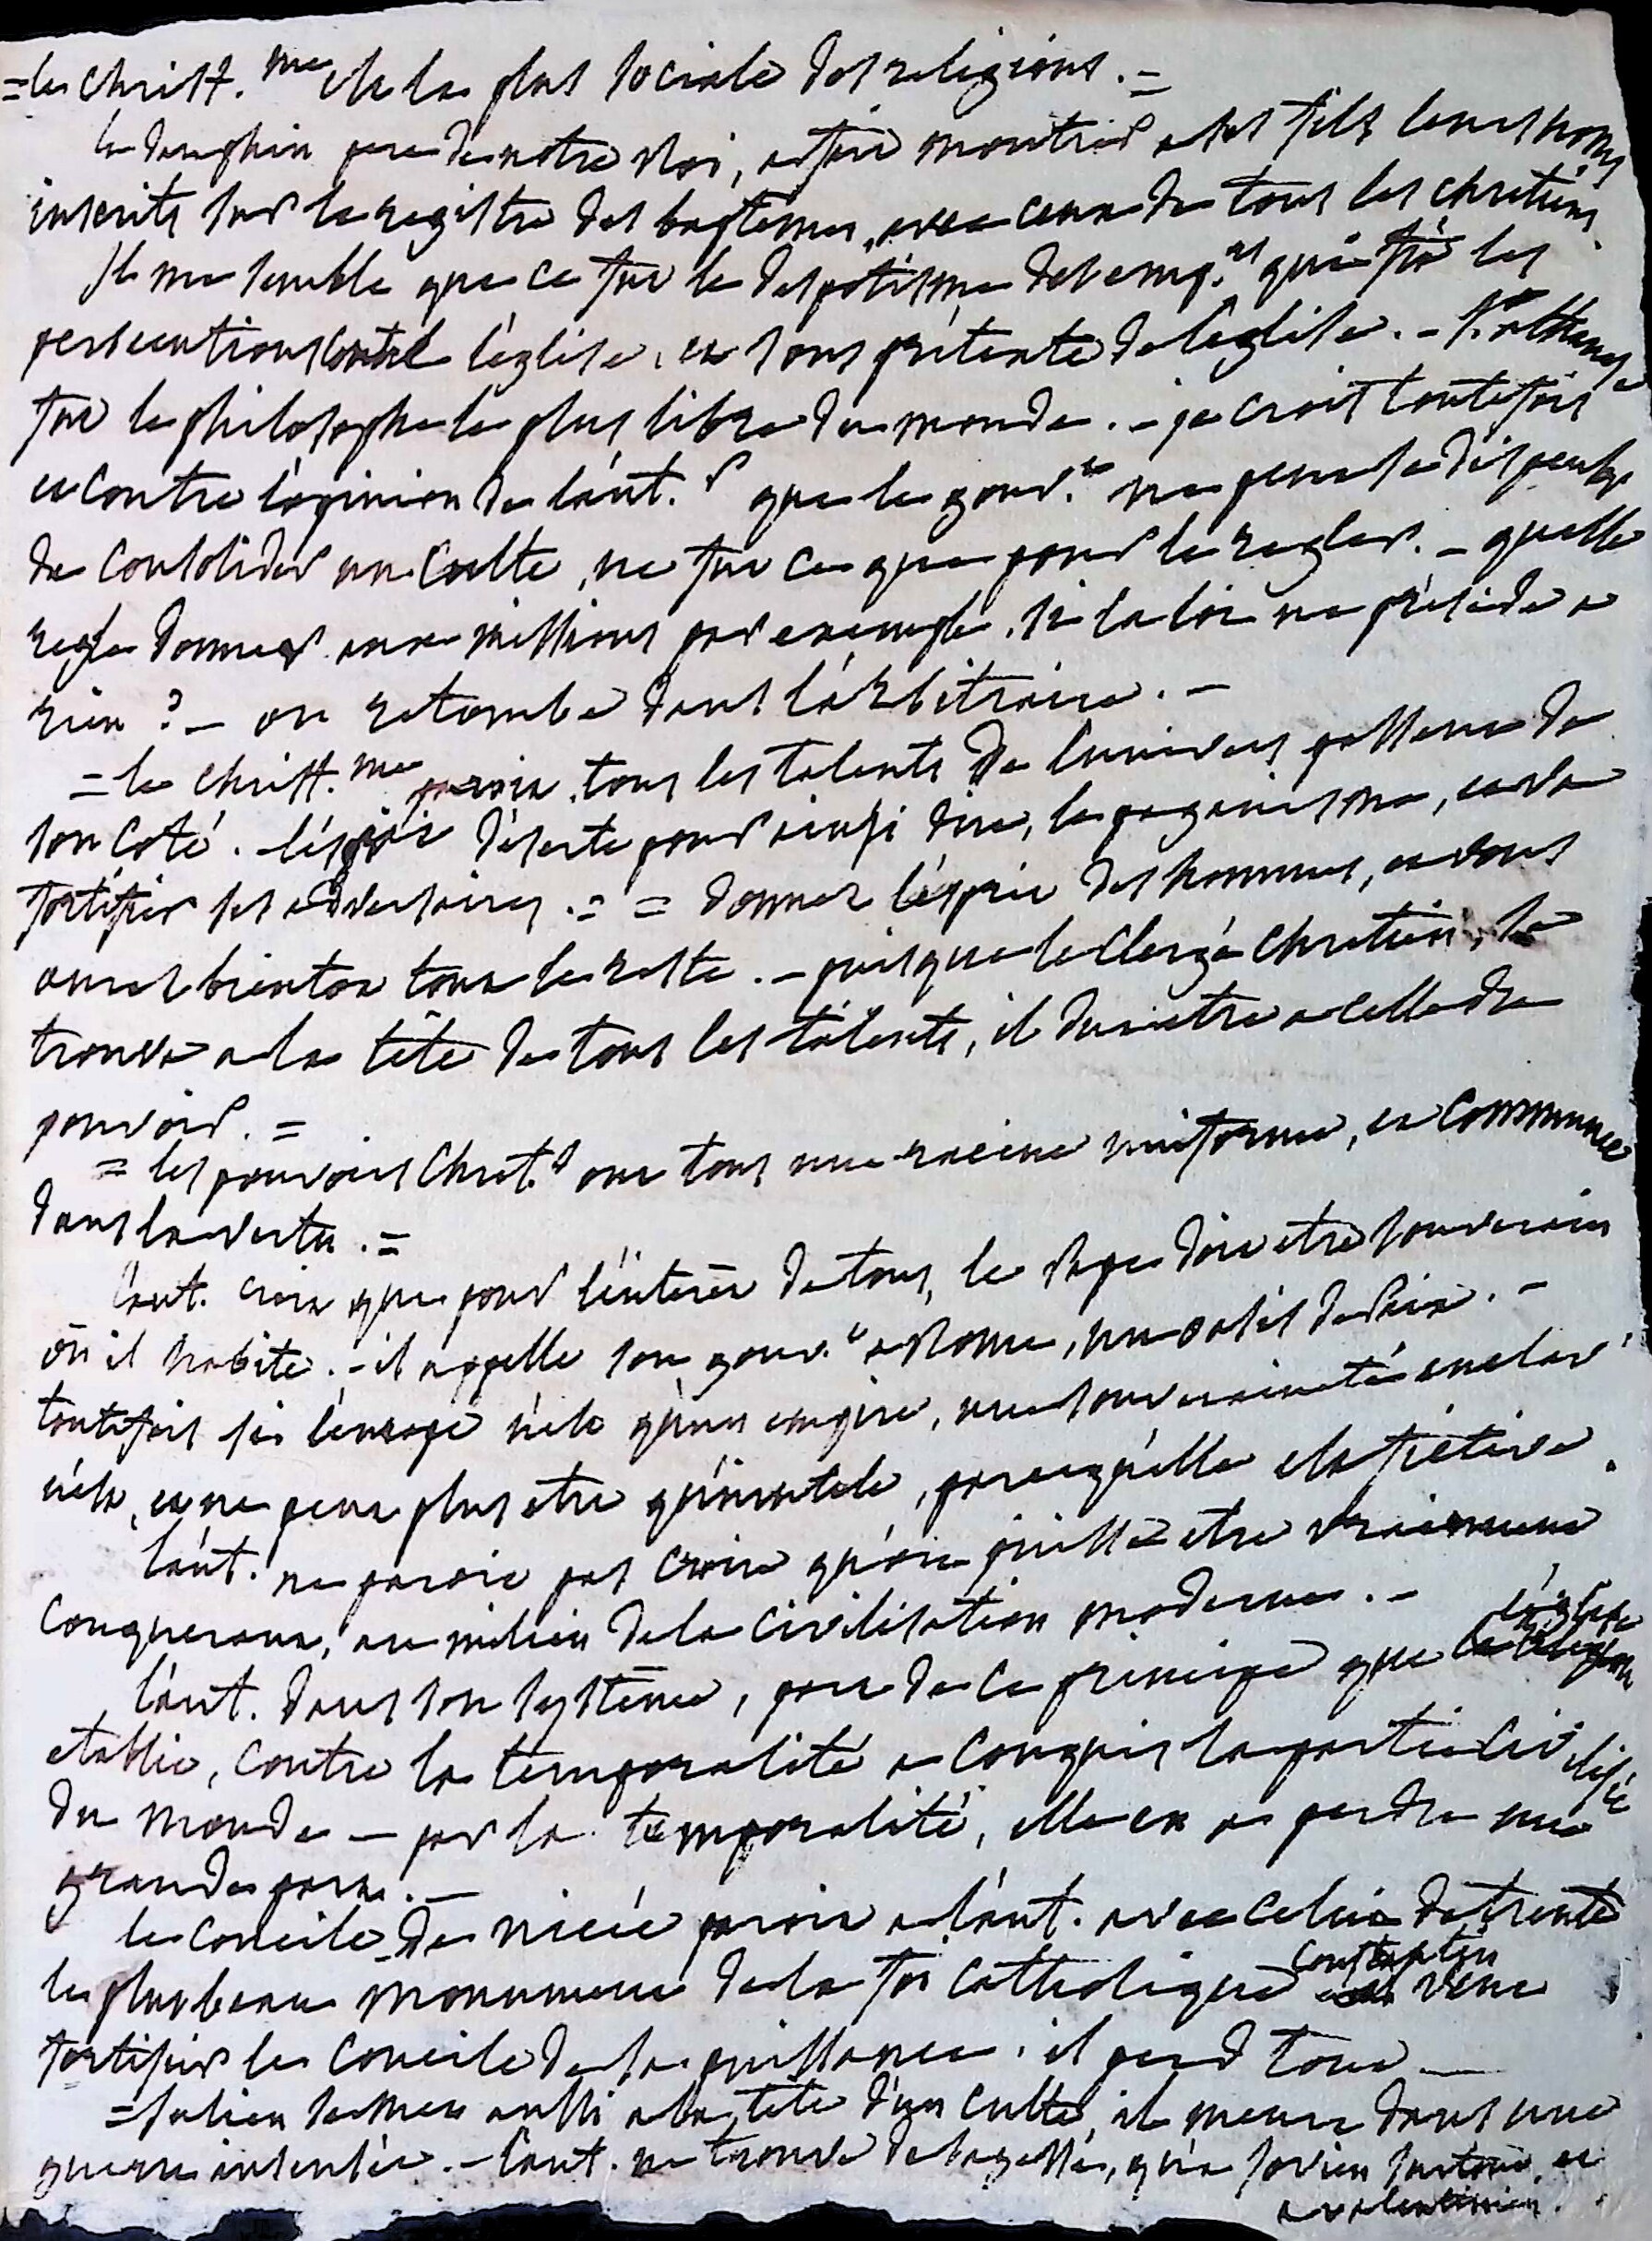 = le christ.me est la plus sociale des religions. =
le dauphin pere de notre Roi, a fait montrer a ses fils leurs noms
inscrits sur le registre des baptêmes, avec ceux de tous les chretiens.
Il me semble que ce fut le despotisme des emp.rs qui fit les
persecutions contre l'église, et sous prétexte de l'église. - St. athanase
fut le philosophe le plus libre du monde. - je crois toutefois
et contre l'opinion de l'aut.r que le gouv.t ne peut se dispenser
de consolider un culte, ne fut ce que pour le regler. - quelle
regle donner aux missions par exemple, si la loi ne préside a
rien ? - on retombe dans l'arbitraire. -
= le christ.me paroit, tous les talents de l'univers passent de
son coté. - l'esprit déserte pour ainsi dire, le paganisme, et va
fortifier ses adversaires. = = donnez l'esprit des hommes, et vous
aurez bientot tout le reste. - puisque le clergé chretien, se
trouve a la tête de tous les talents, il dut etre a celle du
pouvoir. =
= les pouvoirs chret.s ont tous une racine uniforme, et commune
dans la vertu. =
l'aut. croit que pour l'intérêt de tous, le Pape doit etre souverain
où il habite. - il appelle son gouv.t a Rome, un oasis de paix. -
toutefois si l'europe n'est qu'un empire, une souveraineté enclav
n'est, et ne peut plus etre qu'inutile, parcequ'elle est fictive.
l'aut. ne paroit pas croire qu'on puisse etre vraiment
conquerant, au milieu de la civilisation moderne. -
l'aut. dans son systême, part de ce principe que l'église
etablie, contre la temporalité a conquis la partie civilisée
du monde - par la temporalité, elle en a perdu une
grande part. -
le concile de nicée paroit a l'aut. avec celui de trente
le plus beau monument de la foi catholique constantin veut
fortifier le concile de sa puissance. il perd tout -
= Julien se met aussi a la tête d'un culte, il meurt dans une
guerre insensée. - l'aut. ne trouve de sagesse, qu'a Jovien surtout, et
a valentinien.